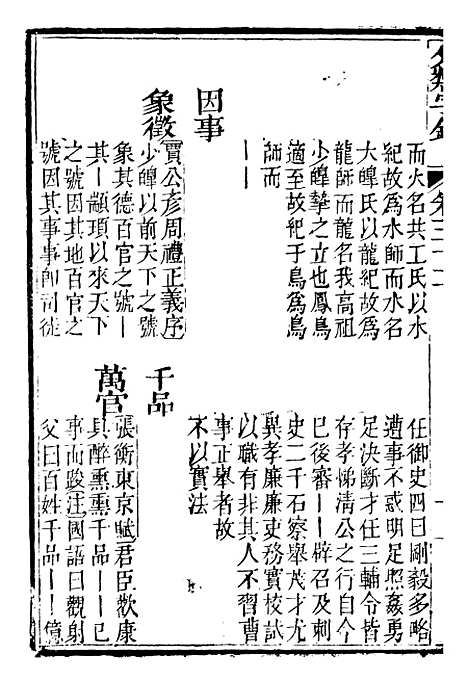 而火名共工氏以水
紀故爲水師而水名
大皥氏以龍紀故爲
龍師而龍名我高祖
少皥摯之立也鳳鳥
適至故紀于鳥爲鳥
師而
丨丨
因事
象徵
賈公彥周禮正義序
少皥以前天下之號
象其德百官之號丨
其丨顓頊以來天下
之號因其地百官之
號因其事事卽司徒
任御史四曰剛毅多略
遭事不惑明足照姦勇
足決斷才任三輔令皆
存孝悌淸公之行自今
已後審丨丨辟召及刺
史二千石察舉茂才尤
異孝廉廉吏務實校試
以職有非其人不習曹
事正舉者故
不以實法
千品
萬官
張衡東京賦君臣歡康
具醉熏熏千品丨丨已
事而踆注國語曰觀射
父曰百姓千品丨丨億